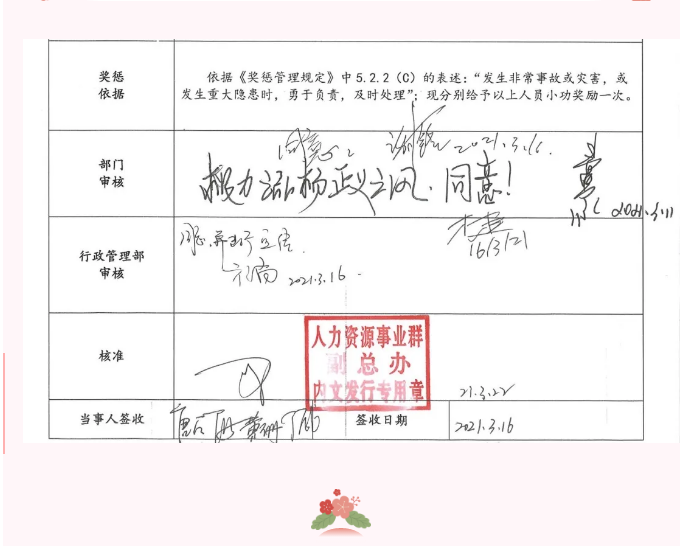 奖惩
依据
依据《奖惩管理规定》中5.2.2(C)的表述:“发生非常事故或灾害,或
发生重大隐患时,勇于负责,及时处理”;现分别给予以上人员小功奖励一次。
同意
2021.3.16.
部门
审核
极力弘扬正义之风、同意!
行政管理部
审核
16/3/21
2021.3.16.
人力资源事业群
副总办
内文发行专用章
核准
21.3.22
当事人签收
签收日期
2021.3.16